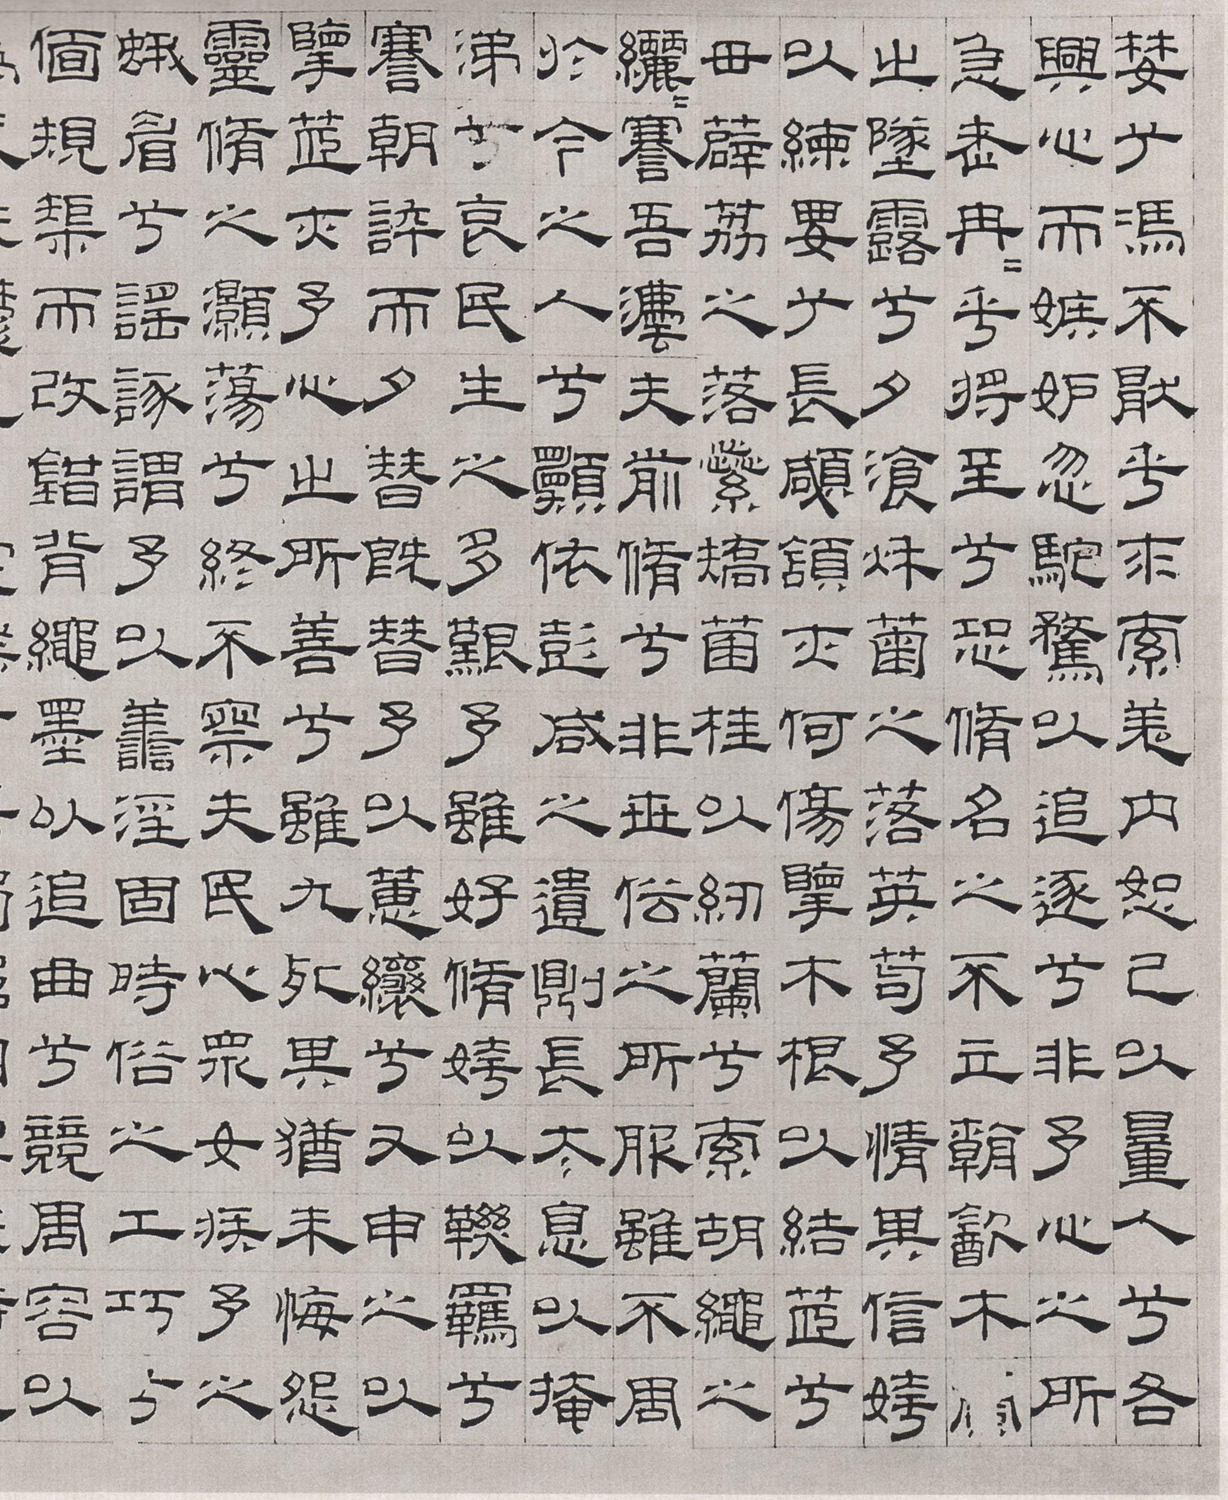 婪兮馮不猒乎求索羌内恕己以量人兮各
興心而嫉妒忽馳騖以追逐兮非予心之所
急老冉〓乎將至兮恐脩名之不立朝飲木
之墜露兮夕湌秌菊之落英苟予情其信姱
以練要兮長顑頷亦何傷擥木根以結茝兮
毌薜荔之落蘂矯菌桂以紉蘭兮索胡繩之
纚〓謇吾灋夫前脩兮非世俗之所服雖不周
於今之人兮顥依彭咸之遺則長太息以掩
涕兮哀民生之多艱予雖好脩姱以鞿羈兮
謇朝誶而夕替既替予以蕙纕兮又申之以
擥茝亦予心之所善兮雖九死其猶未悔怨
靈脩之灝蕩兮終不察夫民心眾女疾予之
蛾眉兮謠諑謂予以譱淫固時俗之工巧兮
偭規榘而改錯背繩墨以追曲兮競周容以